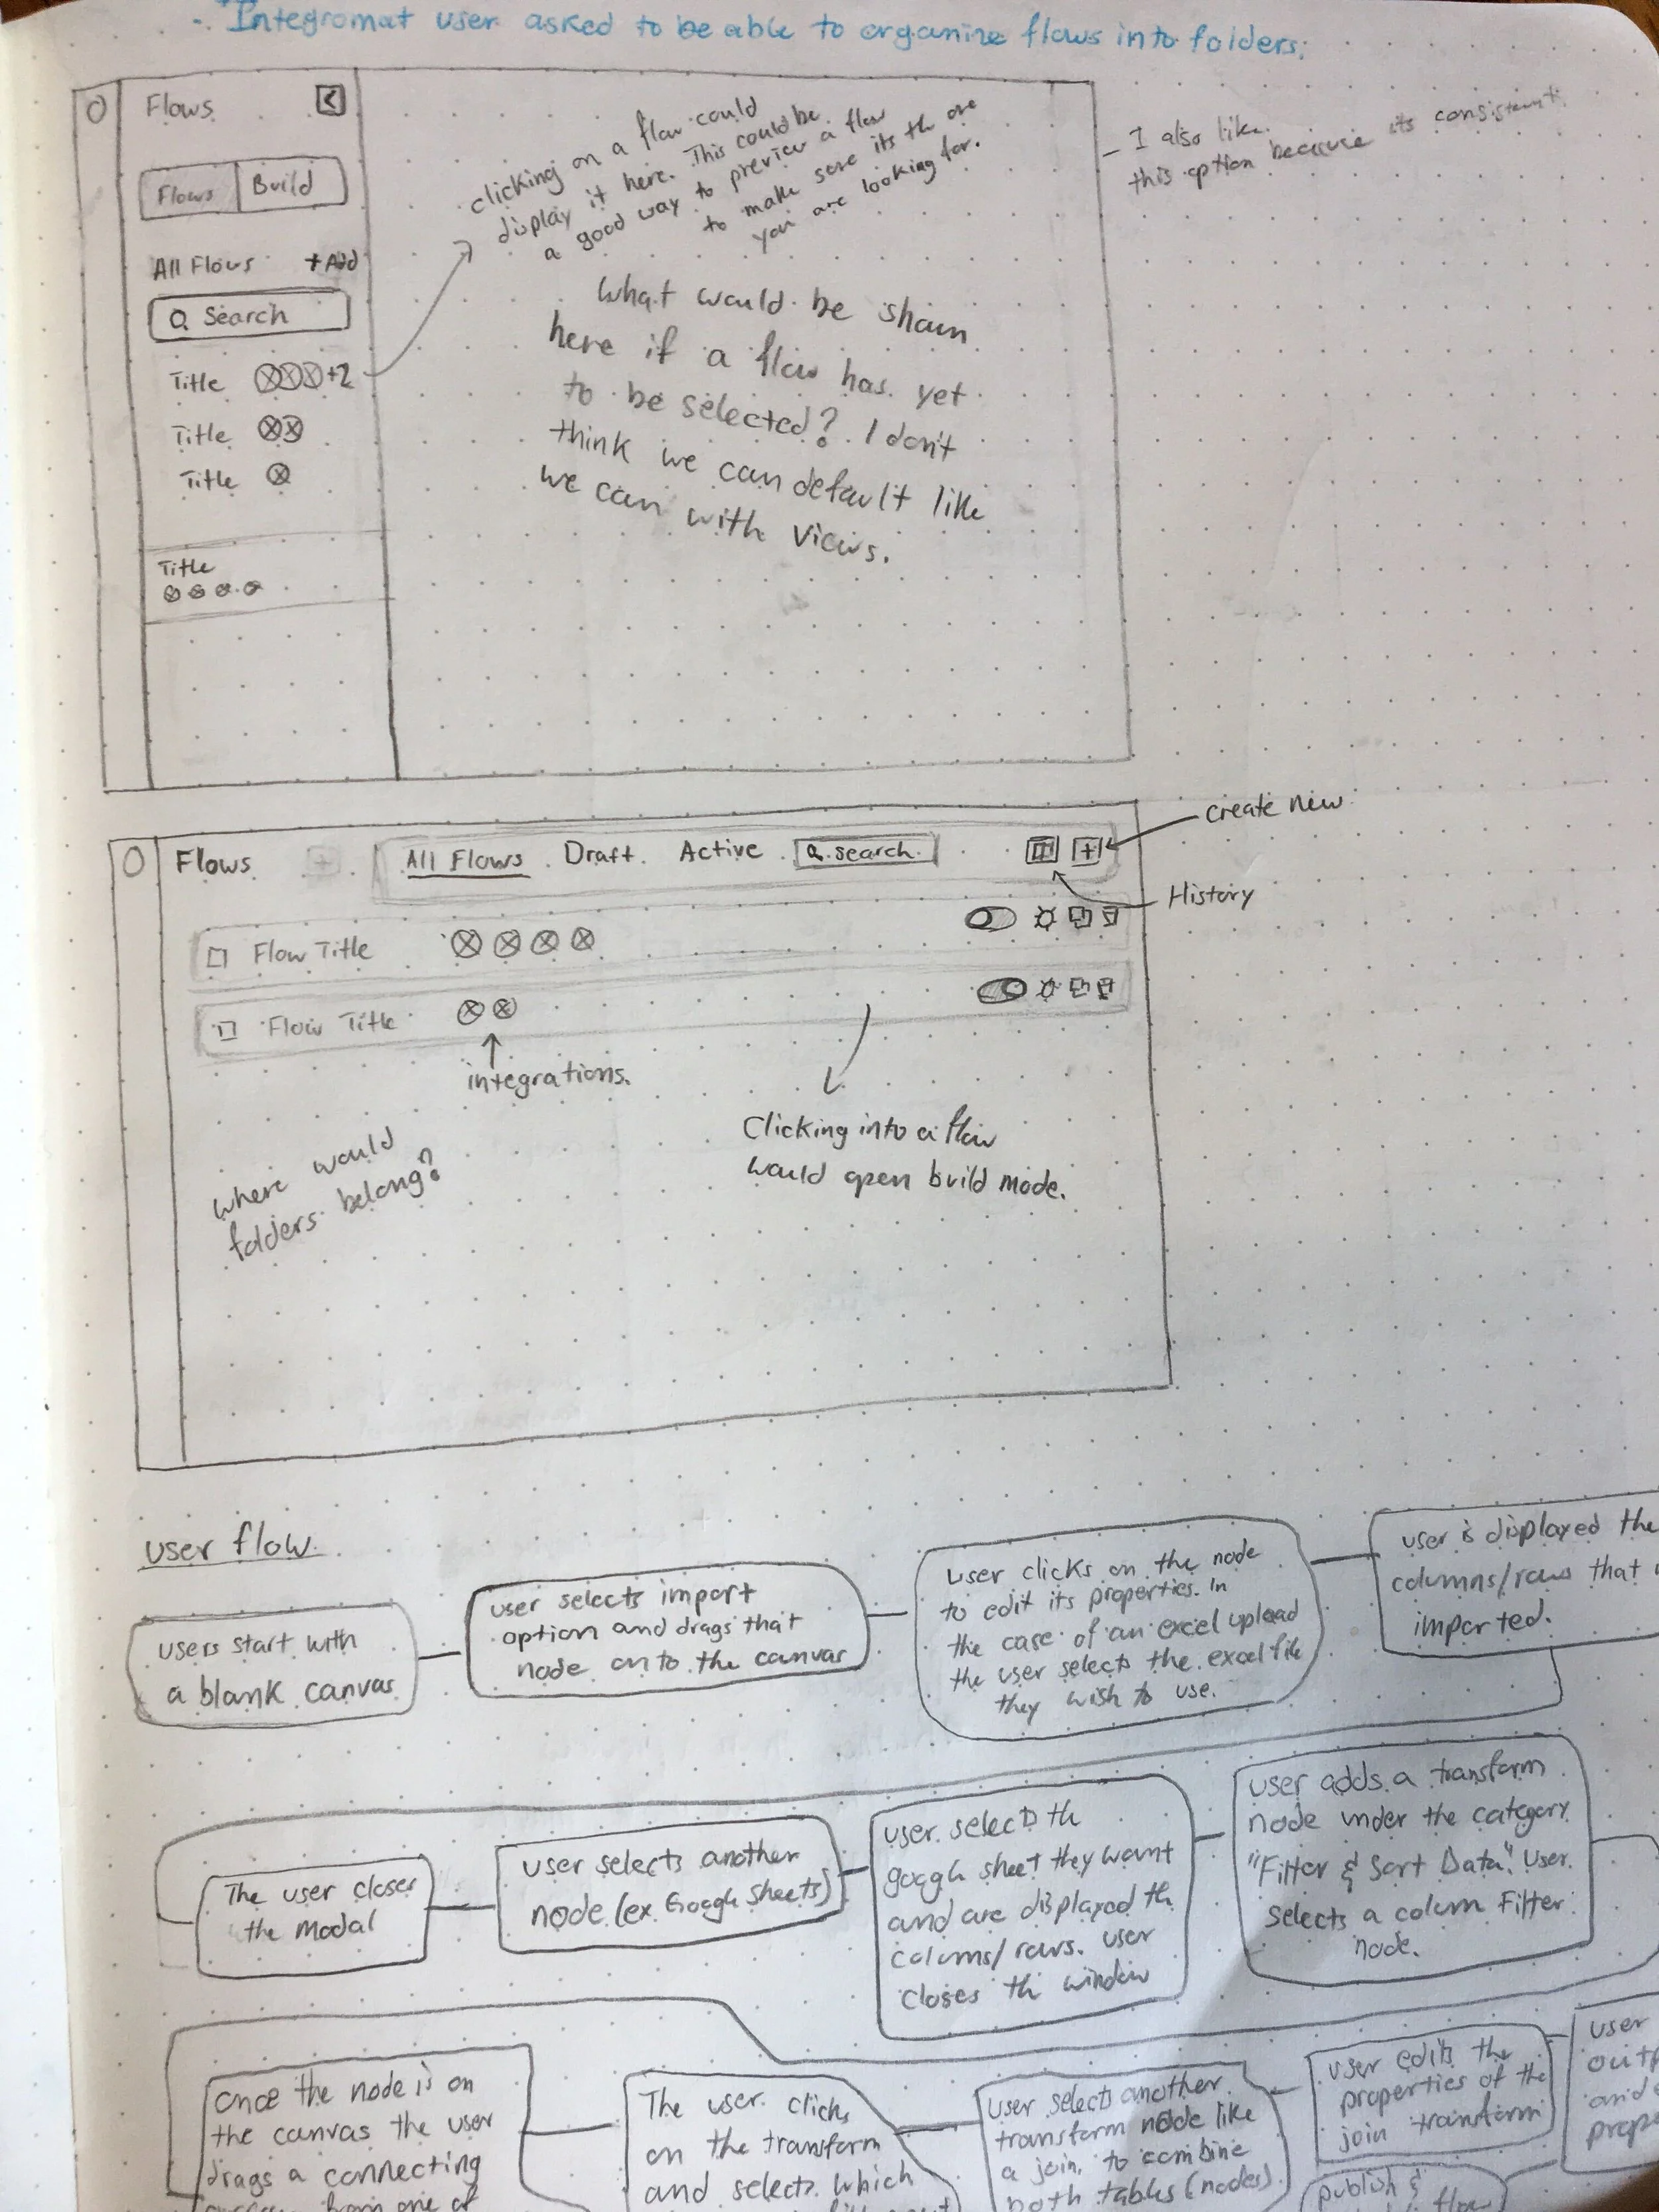 - Integromat user asked to be able to organize flows into folders.
Flows
Flows Build
All Flows +Add
Search
Title +2
Title
Title
Title
clicking on a flow could
display it here. This could be
a good way to preview a flow
to make sure its th one
you are looking for.
What would be shown
here if a flow has yet
to be selected? I don't
think we can default like
we can with views.
- I also like
this option because its consistent.
Flows + All Flows Draft Active search +
create new
History
Flow Title
Flow Title
integrations.
where would
folders belong?
Clicking into a flow
would open build mode.
user flow
users start with
a blank canvas
user selects import
option and drags that
node onto the canvas
user clicks on the node
to edit its properties. In
the case of an excel upload
the user selects the excel file
they wish to use.
user is displayed the
columns/rows that
imported.
The user closes
the modal
user selects another
node (ex Google sheets)
user selects th
google sheet they want
and are displayed th
colums/rows. user
closes th window
user adds a transform
node under the category
"Filter & Sort Data". User
selects a column Filter
node.
once the node is on
the canvas the user
drags a connecting
from one of
The user clicks
on the transform
and selects which
user selects another
transform node like
a join, to combine
both tables (nodes)
user edits the
properties of the
join transform
publish &
flow
user
outp
and
prop